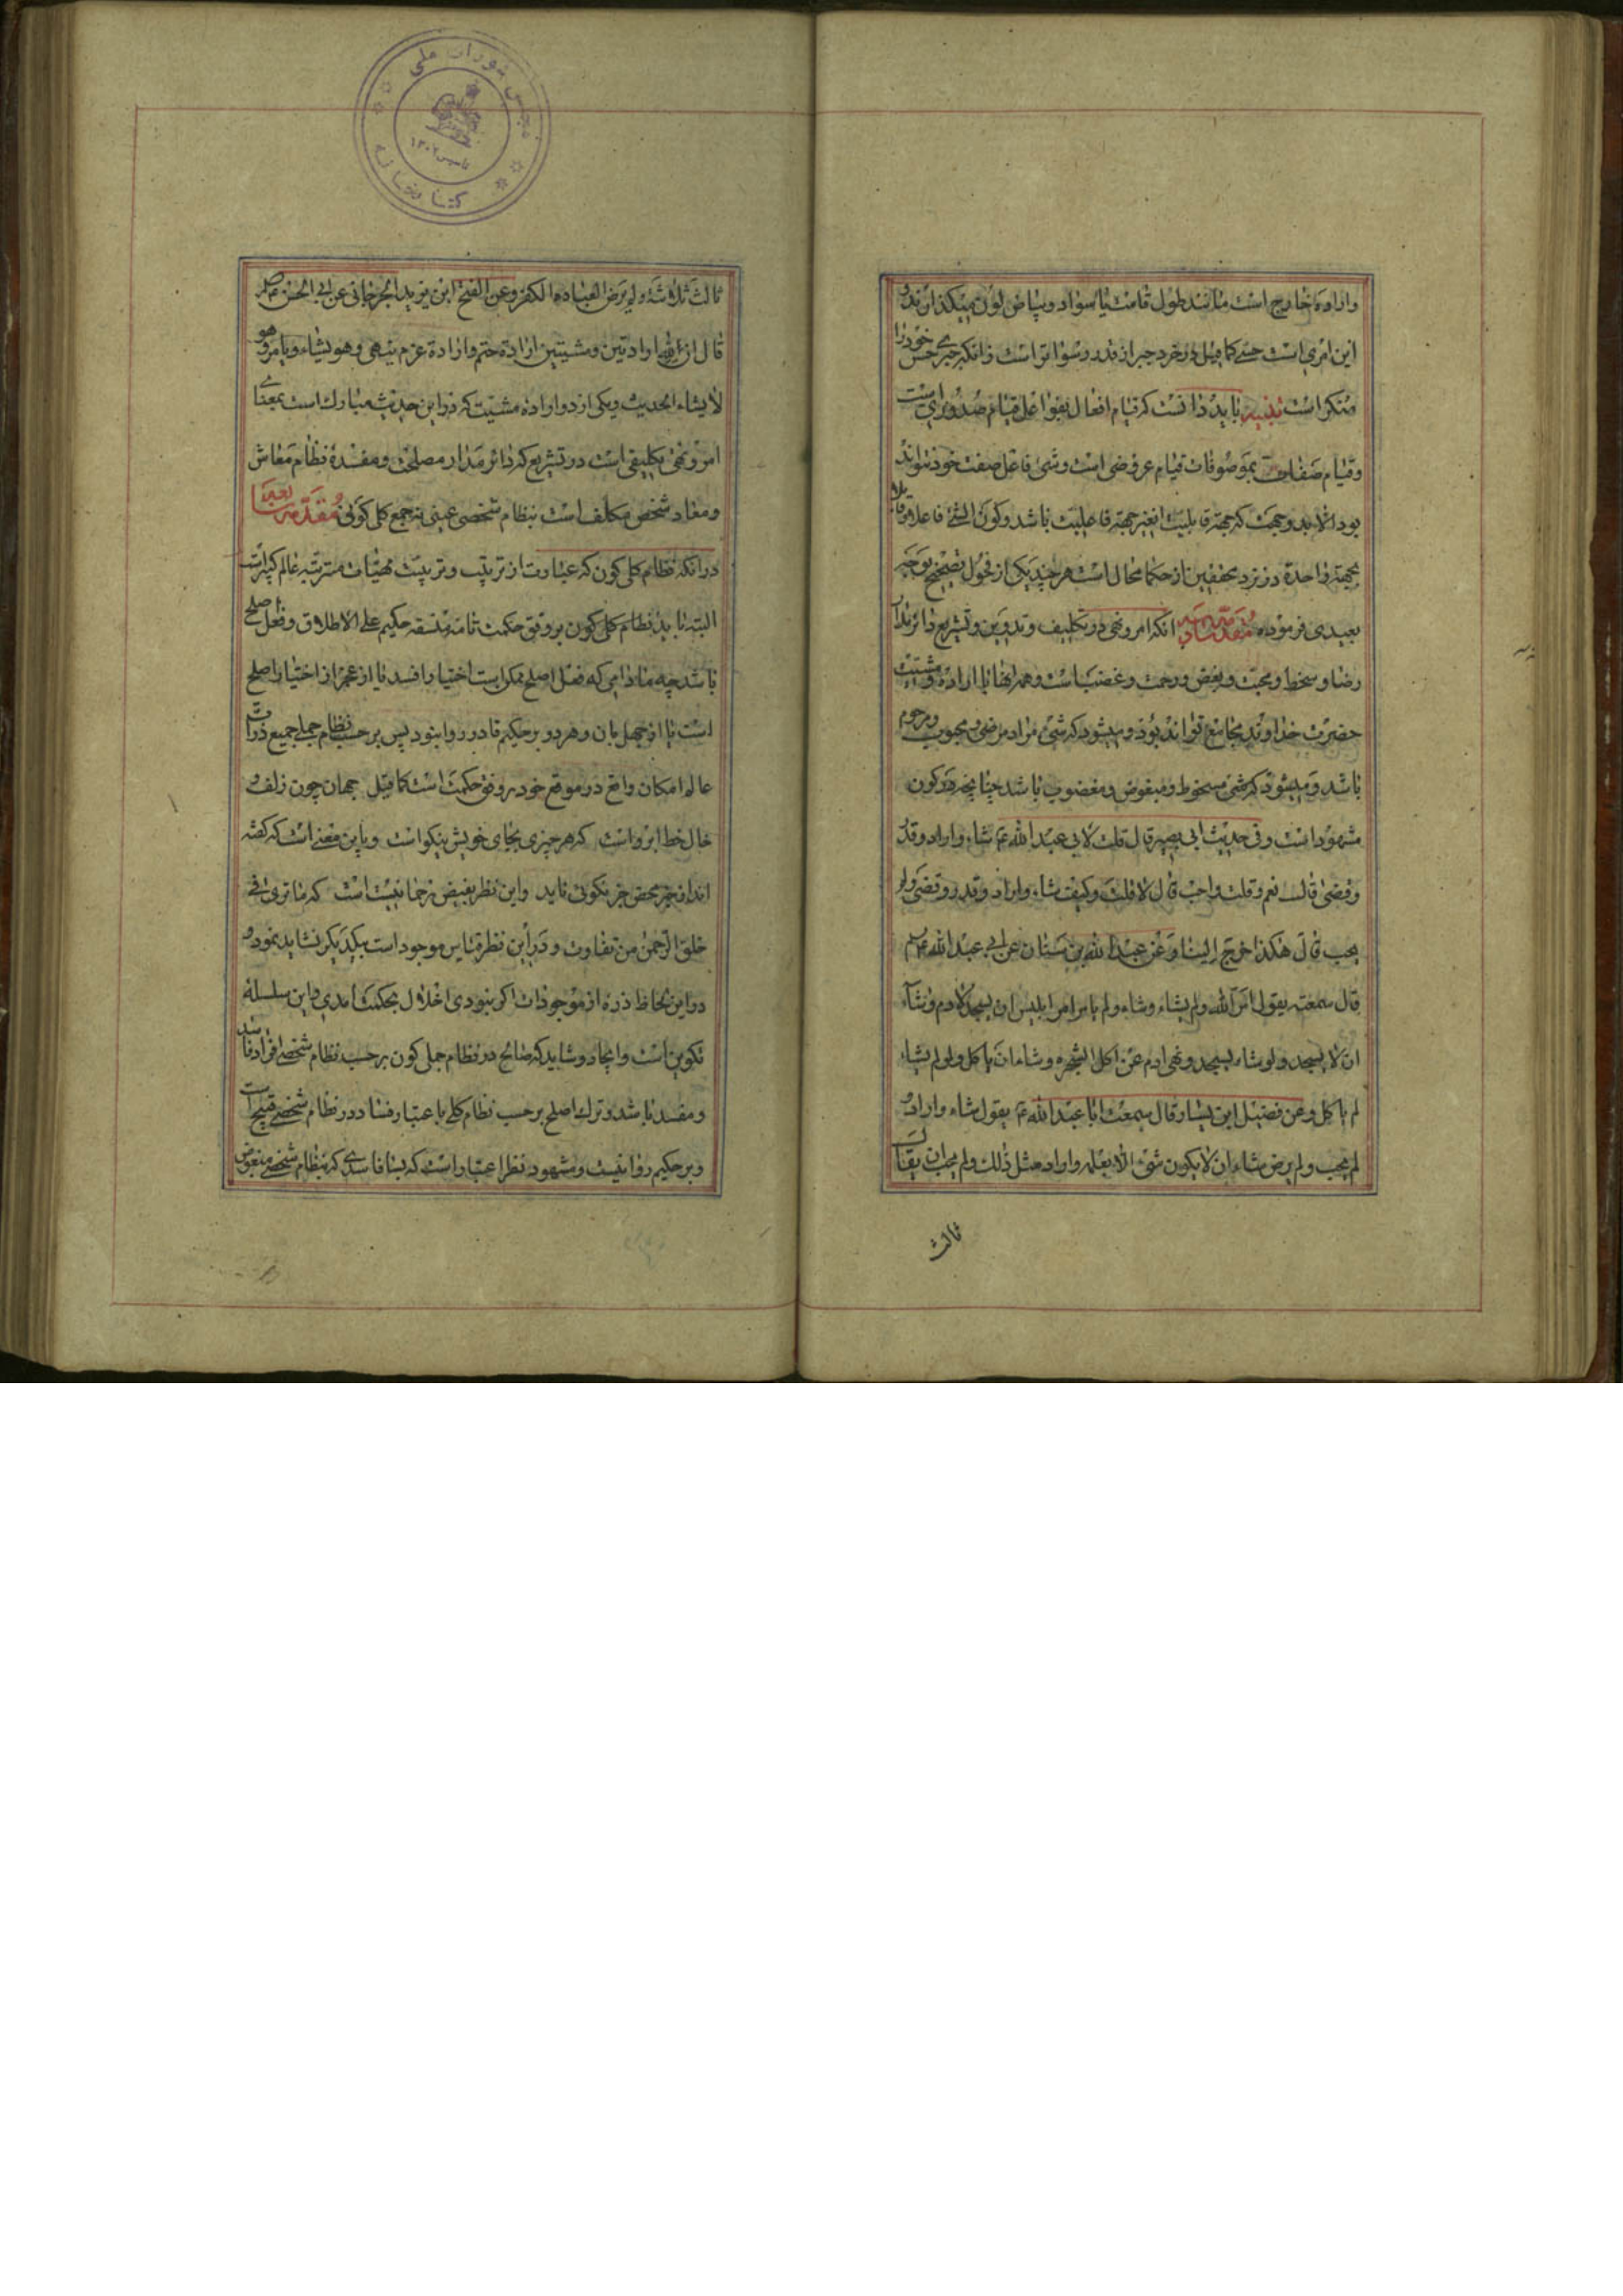 واراده خارج است مانند طول قامت یا سواد وبیاض لون میکند از ندو
این امری است حسے کما قیل در خرد جبر از قدر رسوا تر است زانکه جبرے حس خود را
منکر است تنبیه باید دانست که قیام افعال بفواعل قیام صدوری است
وقیام صفات بموصوفات قیام عروضی است وشئ فاعل صفت خود نتواند
بود الا بدو جهت که جهة قابلیت غیر جهة فاعلیت باشد وکون الشئ فاعلا وقابلا
بجهة واحدة در نزد محققین از حکما محال است هر چند یکی از فحول تصحیح بوجه
بعیدی فرموده مقدمه سادسه انکه امر ونهی در تکلیف وتدوین وتشریع دائر مدار
رضا وسخط ومحبت وبغض ورحمت وغضب است وهمه اینها با اراده ومشیت
حضرت خداوند مجامع تواند بود ومیشود که شئ مراد مرضی ومحبوب ومرحوم
باشد ومیشود که شئ مسخوط ومبغوض ومغضوب باشد چنانچه در کون
مشهود است وفی حدیث ابی بصیر قال قلت لابی عبد الله ع شاء واراد وقدر
وقضی قال نعم وقلت واحب قال لا قلت وکیف شاء واراد وقدر وقضی ولم
یحب قال هکذا خرج الینا وعن عبد الله بن سنان عن ابی عبد الله ع
قال سمعته یقول امر الله ولم یشاء وشاء ولم یامر امر ابلیس ان یسجد لادم وشاء
ان لا یسجد ولو شاء لسجد ونهی ادم عن اکل الشجره وشاء ان یاکل ولو لم یشاء
لم یاکل وعن فضیل ابن یسار قال سمعت ابا عبد الله ع یقول شاء واراد و
لم یحب ولم یرض شاء ان لا یکون شئ الا بعلمه واراد مثل ذلک ولم یحب ان یقال
ثالث
مجلس شورای ملی
تاسیس ۱۳۰۲
کتابخانه
ثالث ثلاثة ولم یرض لعباده الکفر وعن الفتح ابن یزید الجرجانی عن ابی الحسن ع
قال ان لله ارادتین ومشیتین ارادة حتم وارادة عزم ینهی وهو یشاء ویامر وهو
لا یشاء الحدیث ویکی از دو اراده مشیت که در این حدیث مبارک است بمعنای
امر ونهی تکلیفی است در تشریع که دائر مدار مصلحت ومفسدهٔ نظام معاش
ومعاد شخص مکلف است بنظام شخصی عینی نه جمع کلی کونی مقدمه سابعه
در انکه نظام کلی کون که عبارت از ترتیب وتربیت مهیات مترتبه عالم کبیر است
البته باید نظام کلی کون بر وفق حکمت تامه متسقه حکیم علی الاطلاق وفعل اصلح
باشد چه مادامی که فعل اصلح ممکن است اختیار افسد یا از عجز از اختیار اصلح
است یا از جهل بان وهر دو بر حکیم قادر روا نبود پس بر حسب نظام جملی جمیع ذرات
عالم امکان واقع در موقع خود بر وفق حکمت است کما قیل جهان چون زلف و
خال خط ابرو است که هر چیزی بجای خویش نیکو است وباین معنے است که کفته
اند از خیر محض جز نکوئی ناید واین نظر بفیض رحمانیت است که ما تری فی
خلق الرحمن من تفاوت ودر این نظر قیاس موجودات بیکدیکر نشاید نمود و
در این لحاظ ذره از موجودات اکر نبودی اخلال بحکمت امدی واین سلسلهٔ
تکوین است وایجاد وشاید که صالح در نظام جملی کون بر حسب نظام شخصے افراد فاسد
ومفسد باشد وترک اصلح بر حسب نظام کلی باعتبار فساد در نظام شخصے قبیح است
وبر حکیم روا نیست ومشهود نظر اعتبار است که بسا فاسدی که بنظام شخصے مبغوض